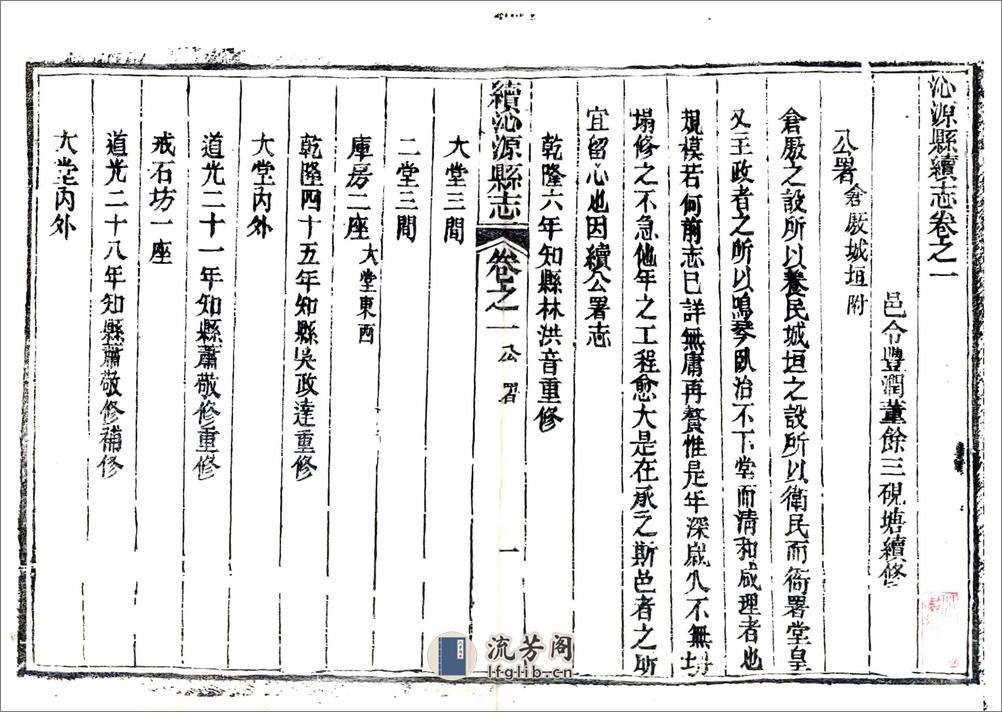 沁源縣續志卷之一
邑令豐潤董餘三硯塘續修
公署 倉廒城垣附
倉廒之設所以養民城垣之設所以衛民而衙署堂皇
又王政者之所以鳴琴臥治不下堂而清和咸理者也
規模若何前志已詳無庸再贅惟是年深歲久不無坍
塌修之不急他年之工程愈大是在承乏斯邑者之所
宜留心也因續公署志
乾隆六年知縣林洪音重修
大堂三間
續沁源縣志 卷之一 公署 一
二堂三間
庫房二座 大堂東西
乾隆四十五年知縣吳政達重修
大堂內外
道光二十一年知縣蕭敬修重修
戒石坊一座
道光二十八年知縣蕭敬修補修
大堂內外
流芳阁
lfglib.cn